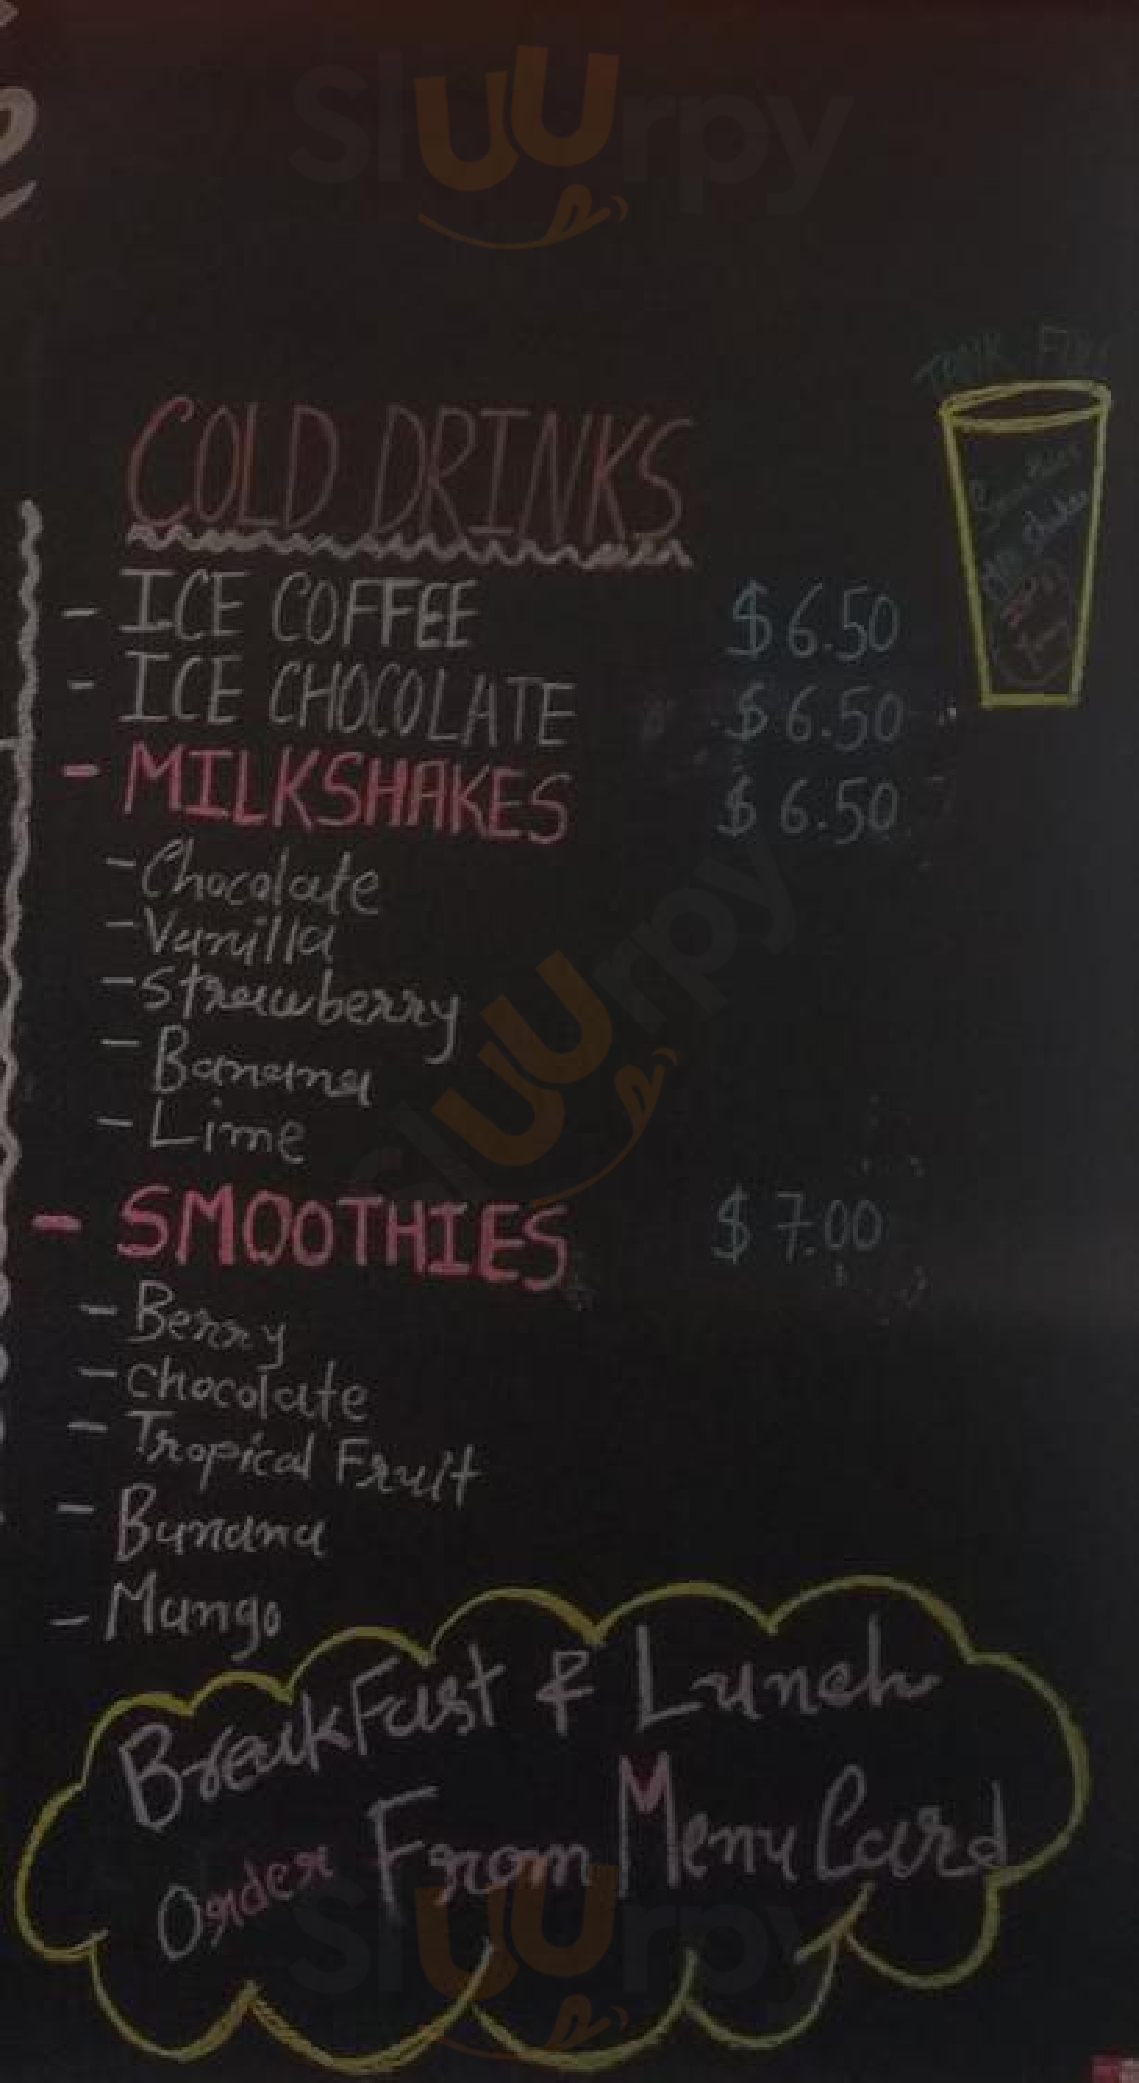 Sluurpy
COLD DRINKS
- ICE COFFEE $6.50
- ICE CHOCOLATE $6.50
- MILKSHAKES $6.50
- Chocolate
- Vanilla
- Strawberry
- Banana
- Lime
Sluurpy
- SMOOTHIES $7.00
- Berry
- Chocolate
- Tropical Fruit
- Banana
- Mango
BreakFast & Lunch
Order From Menu Card
Sluurpy